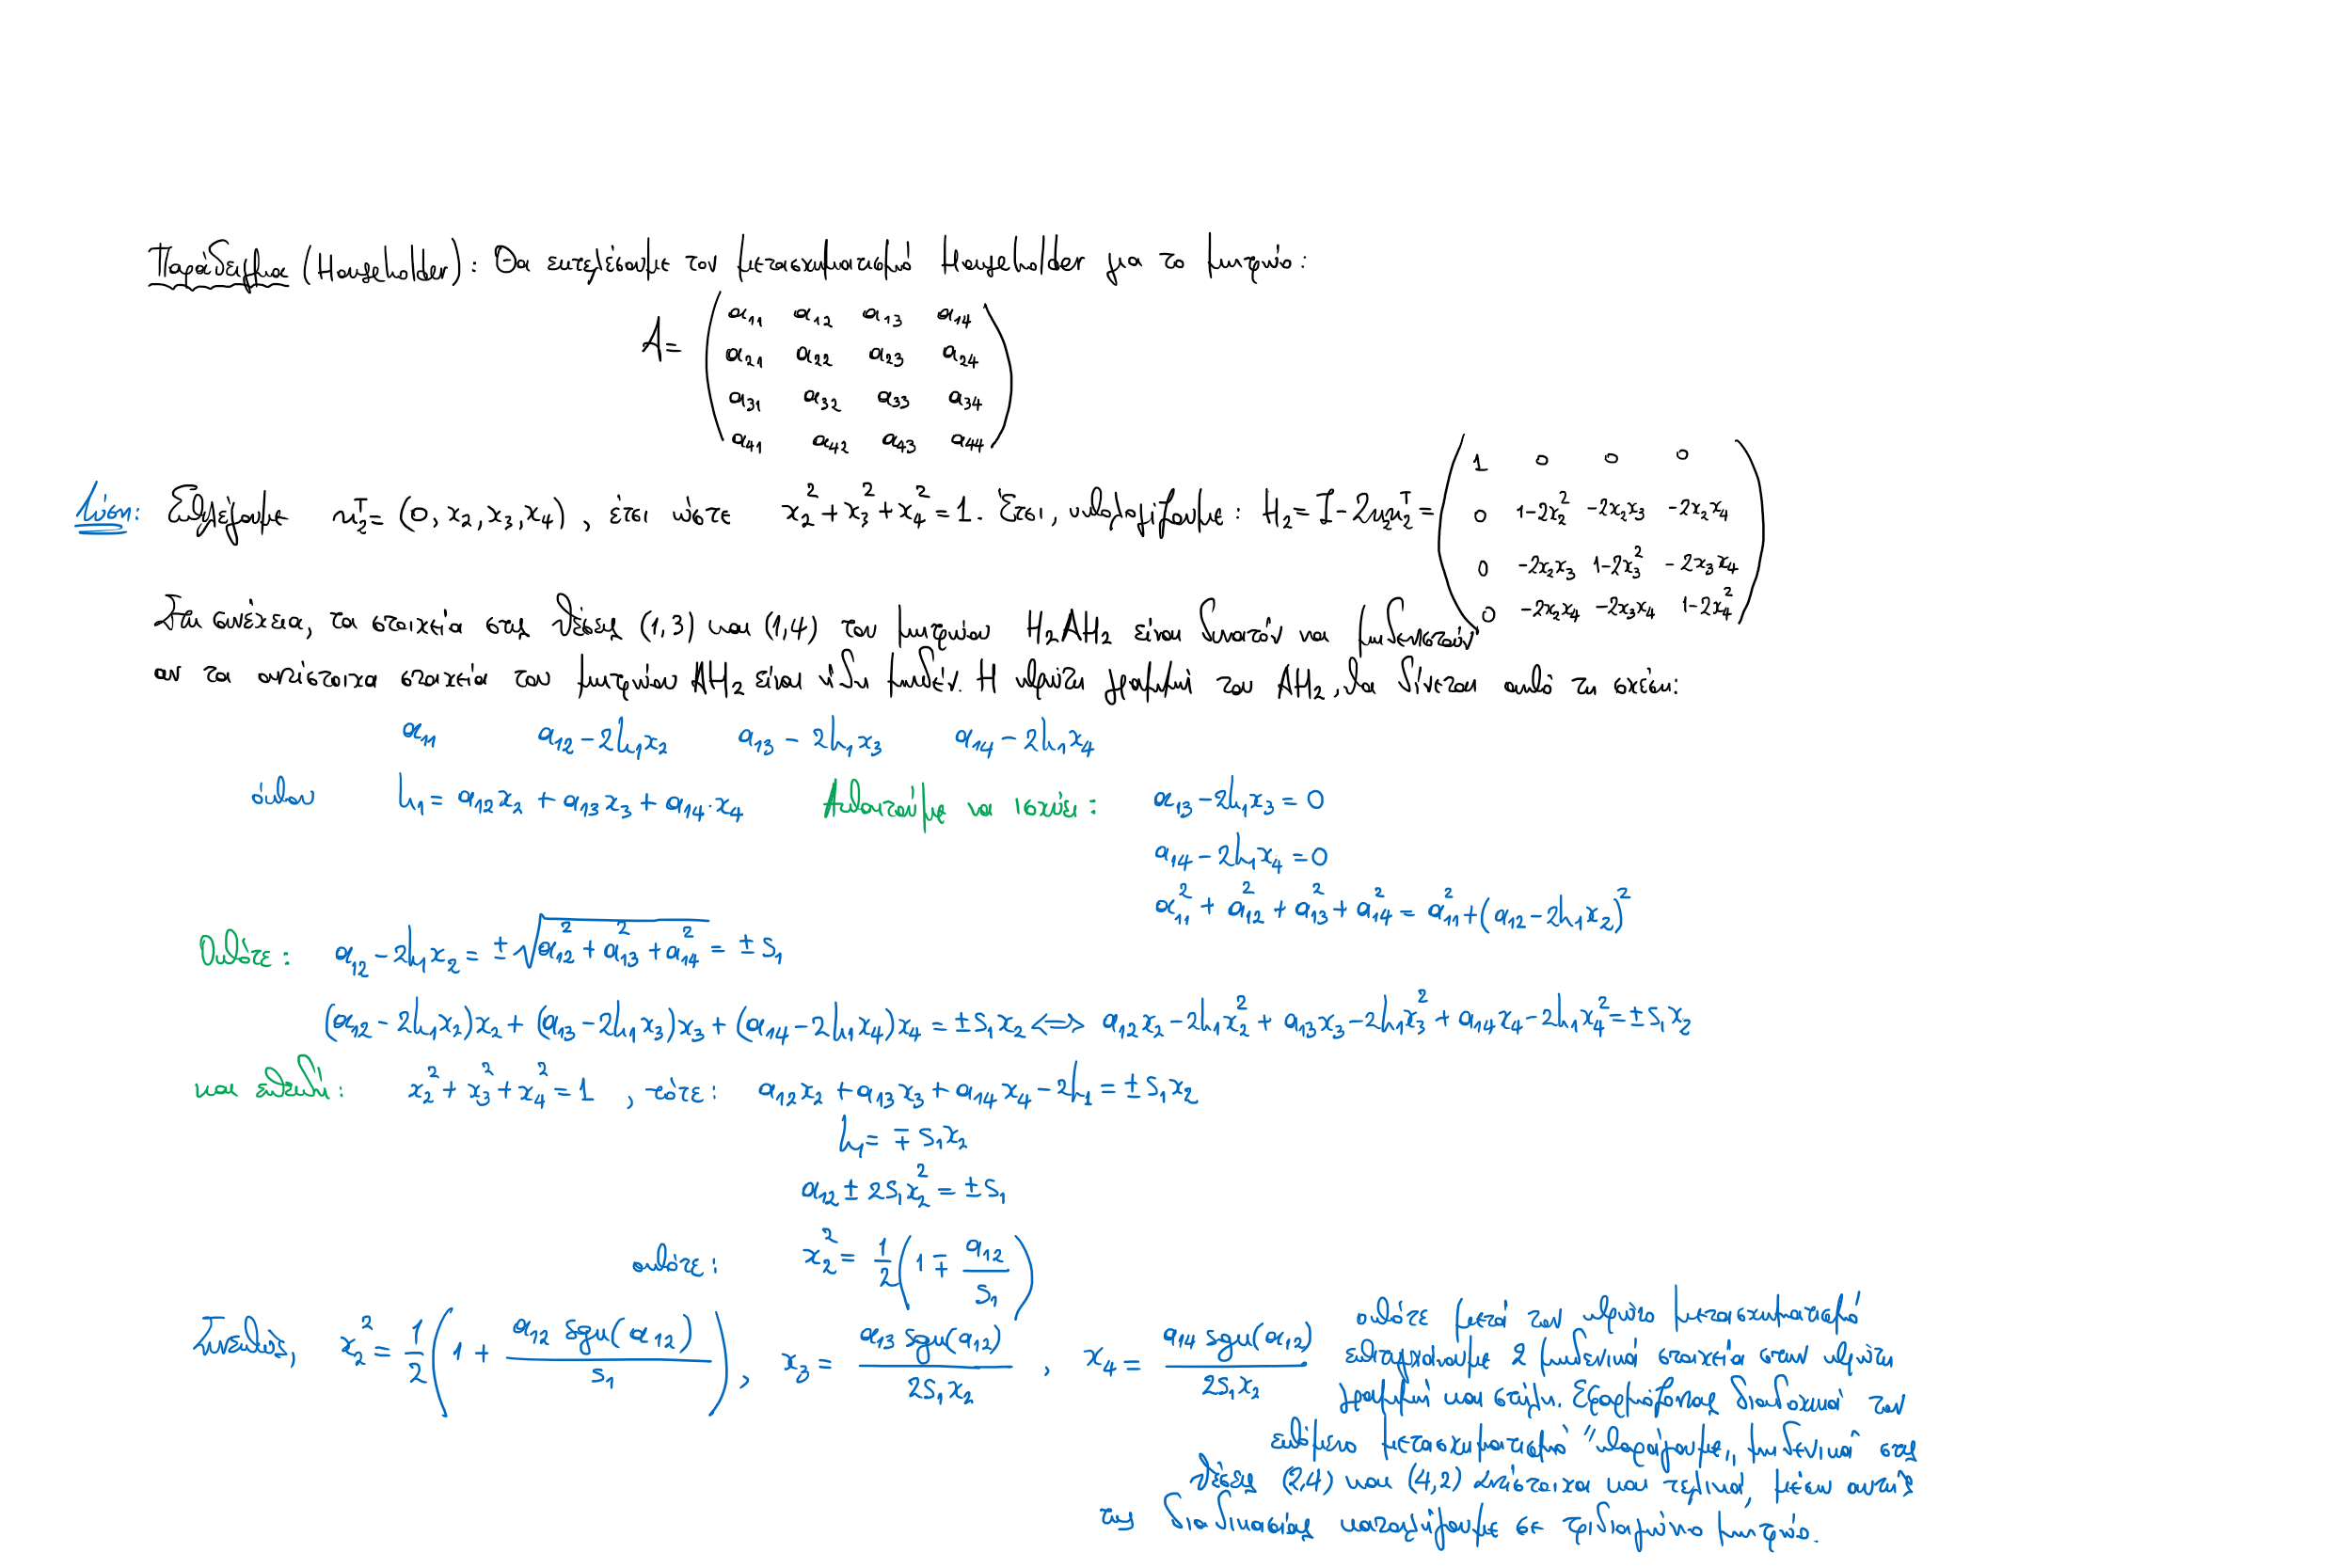 Παράδειγμα (Householder): Θα εκτελέσουμε τον μετασχηματισμό Householder για το μητρώο:
A = ( a₁₁ a₁₂ a₁₃ a₁₄
a₂₁ a₂₂ a₂₃ a₂₄
a₃₁ a₃₂ a₃₃ a₃₄
a₄₁ a₄₂ a₄₃ a₄₄ )
Λύση: Επιλέγουμε u₂ᵀ = (0, x₂, x₃, x₄), έτσι ώστε x₂² + x₃² + x₄² = 1. Έτσι, υπολογίζουμε: H₂ = I - 2u₂u₂ᵀ = ( 1 0 0 0
0 1-2x₂² -2x₂x₃ -2x₂x₄
0 -2x₂x₃ 1-2x₃² -2x₃x₄
0 -2x₂x₄ -2x₃x₄ 1-2x₄² )
Στη συνέχεια, τα στοιχεία στις θέσεις (1,3) και (1,4) του μητρώου H₂AH₂ είναι δυνατόν να μηδενιστούν
αν τα αντίστοιχα στοιχεία του μητρώου AH₂ είναι ήδη μηδέν. Η πρώτη γραμμή του AH₂, θα δίνεται από τη σχέση:
a₁₁ a₁₂ - 2h₁x₂ a₁₃ - 2h₁x₃ a₁₄ - 2h₁x₄
όπου h₁ = a₁₂x₂ + a₁₃x₃ + a₁₄·x₄ Απαιτούμε να ισχύει: a₁₃ - 2h₁x₃ = 0
a₁₄ - 2h₁x₄ = 0
a₁₁² + a₁₂² + a₁₃² + a₁₄² = a₁₁² + (a₁₂ - 2h₁x₂)²
Οπότε: a₁₂ - 2h₁x₂ = ±√(a₁₂² + a₁₃² + a₁₄²) = ± S₁
(a₁₂ - 2h₁x₂)x₂ + (a₁₃ - 2h₁x₃)x₃ + (a₁₄ - 2h₁x₄)x₄ = ± S₁x₂ <=> a₁₂x₂ - 2h₁x₂² + a₁₃x₃ - 2h₁x₃² + a₁₄x₄ - 2h₁x₄² = ± S₁x₂
και επειδή: x₂² + x₃² + x₄² = 1 , τότε: a₁₂x₂ + a₁₃x₃ + a₁₄x₄ - 2h₁ = ± S₁x₂
h₁ = ∓ S₁x₂
a₁₂ ± 2S₁x₂² = ± S₁
οπότε: x₂² = 1/2 (1 ∓ a₁₂/S₁)
Συνεπώς, x₂² = 1/2 (1 + a₁₂ sgn(a₁₂)/S₁), x₃ = a₁₃ sgn(a₁₂)/2S₁x₂ , x₄ = a₁₄ sgn(a₁₂)/2S₁x₂
οπότε μετά τον πρώτο μετασχηματισμό
επιτυγχάνουμε 2 μηδενικά στοιχεία στην πρώτη
γραμμή και στήλη. Εφαρμόζοντας διαδοχικά τον
επόμενο μετασχηματισμό "παράγουμε,, μηδενικά στις
θέσεις (2,4) και (4,2) αντίστοιχα και τελικά, μέσω αυτής
της διαδικασίας καταλήγουμε σε τριδιαγώνιο μητρώο.